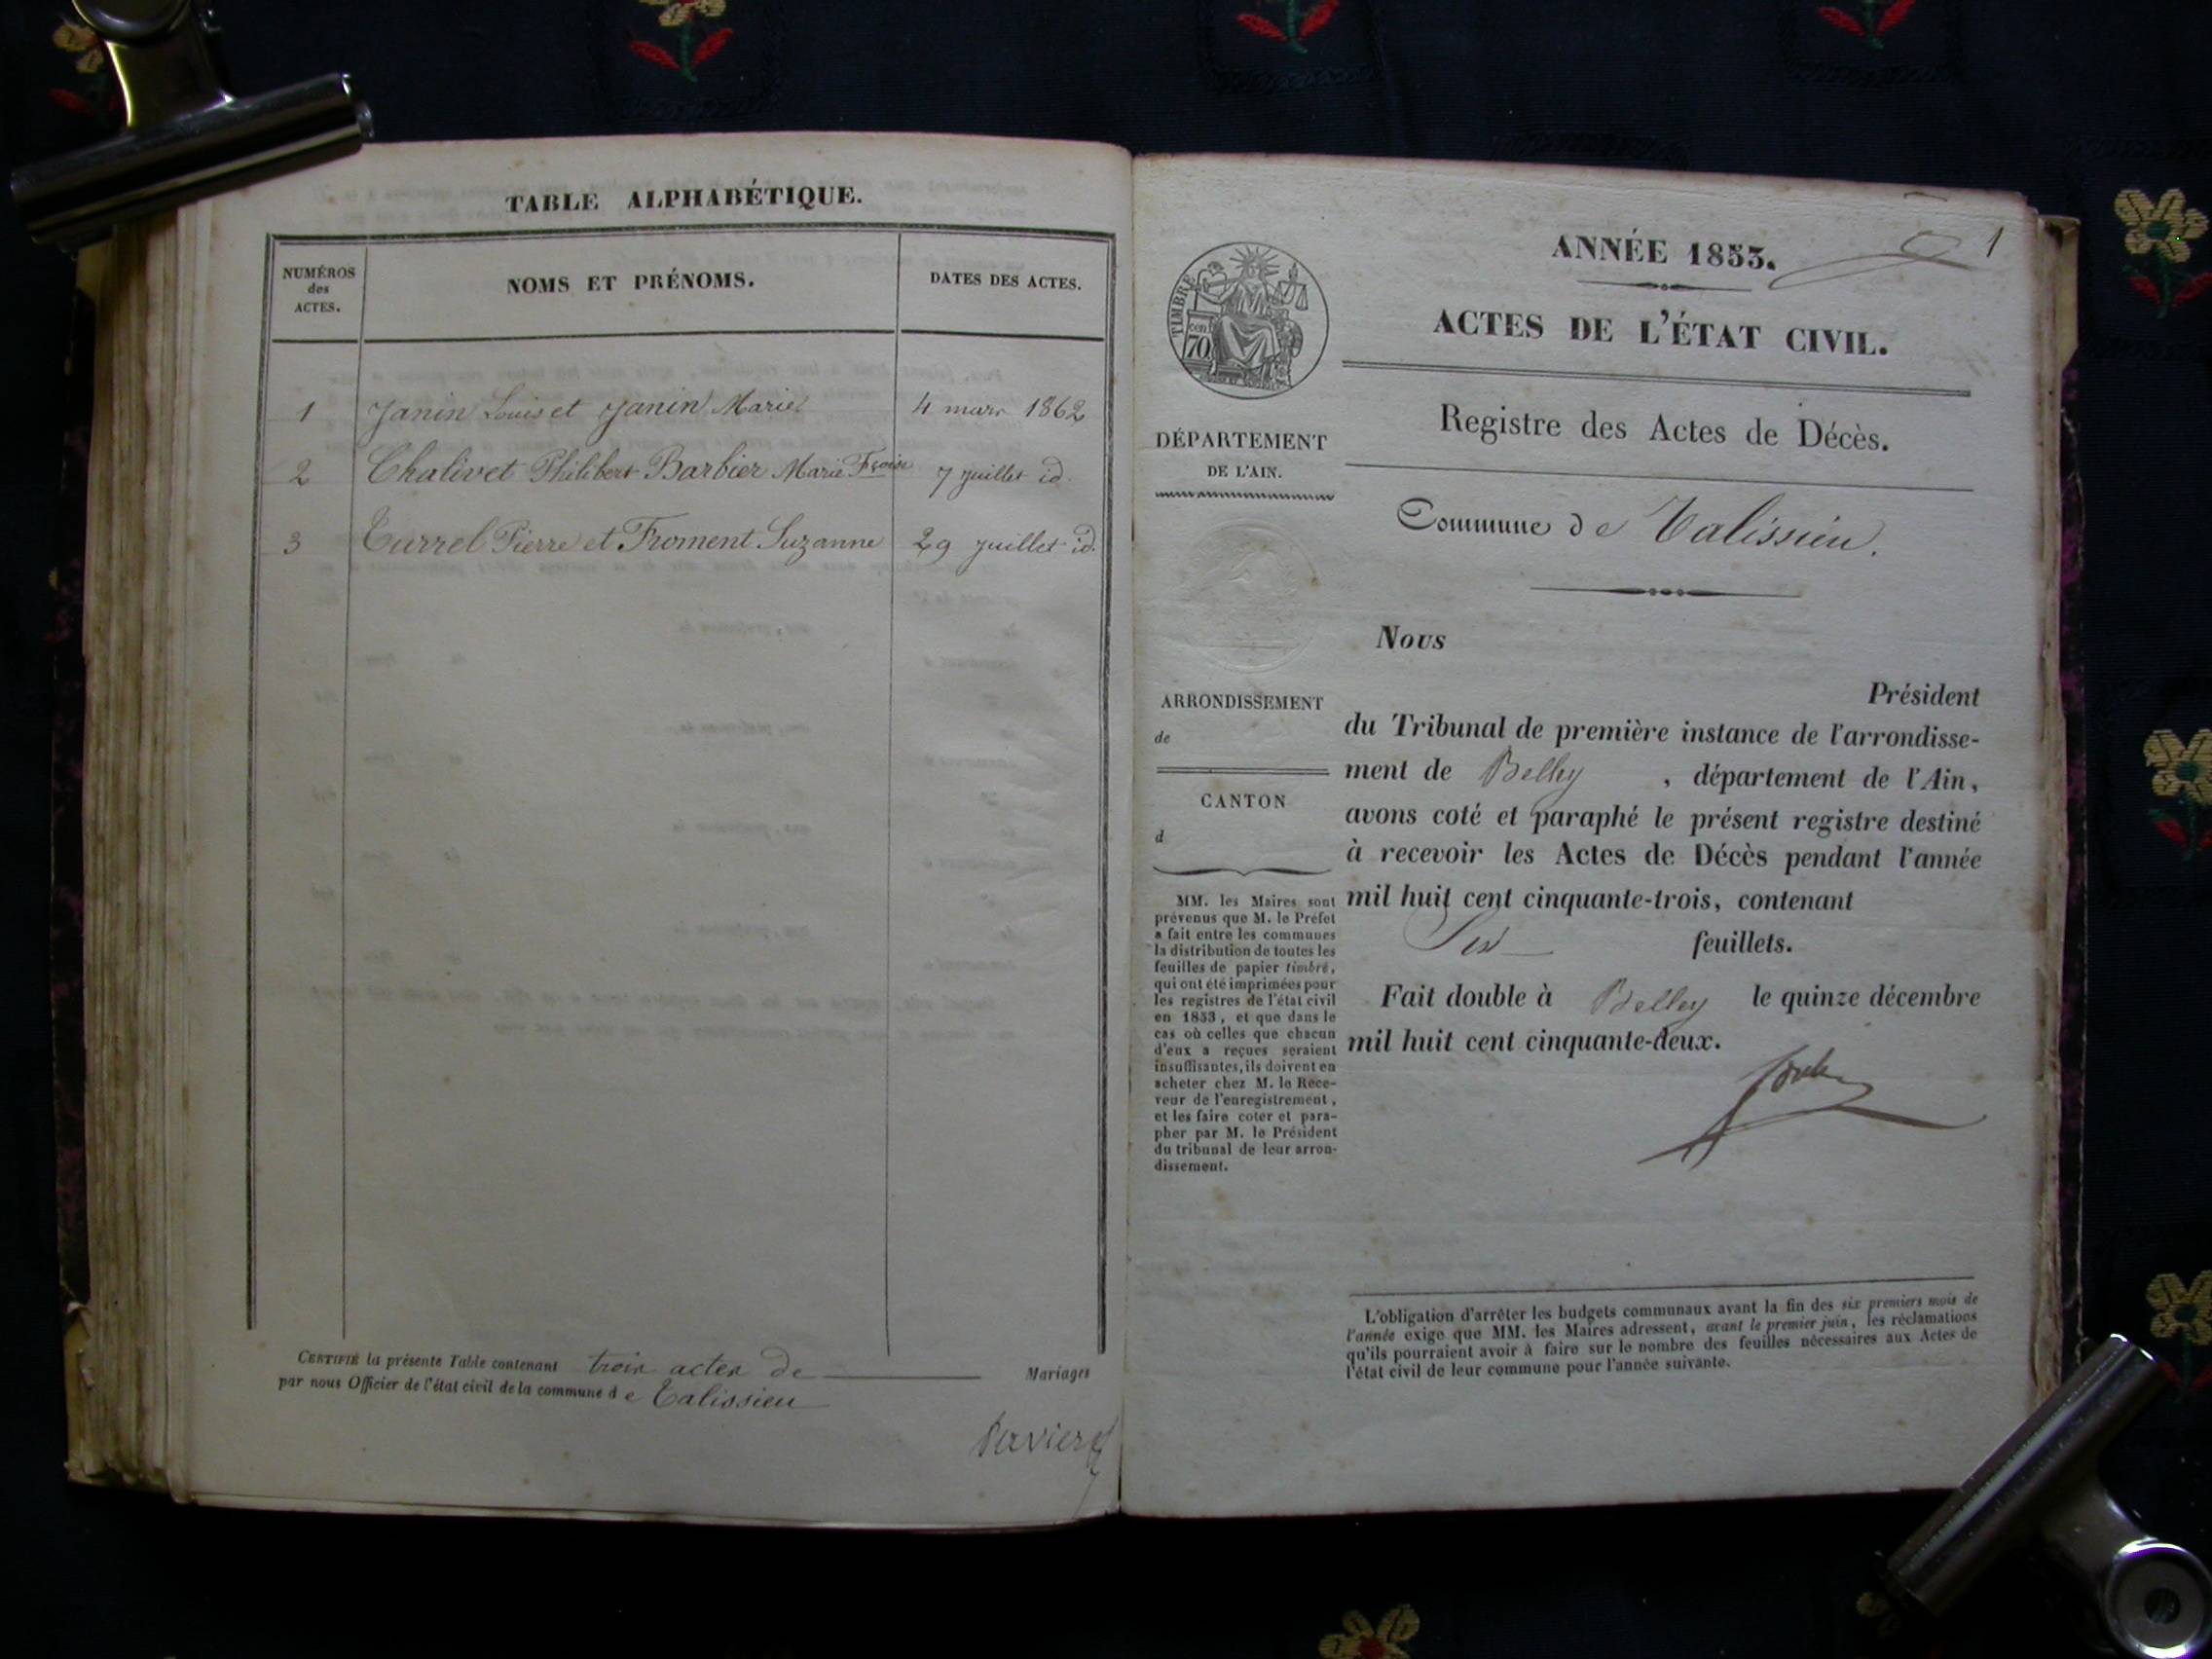 TABLE ALPHABÉTIQUE.
NUMÉROS
des
ACTES.
NOMS ET PRÉNOMS.
DATES DES ACTES.
1 Janin Louis et Janin Marie 4 mars 1862
2 Chalivet Philibert Barbier Marie Fçoise 7 juillet id.
3 Turrel Pierre et Froment Suzanne 29 juillet id.
CERTIFIÉ la présente Table contenant trois actes de Mariages
par nous Officier de l'état civil de la commune d e Talissieu
ANNÉE 1853.
1
ACTES DE L'ÉTAT CIVIL.
TIMBRE
cen
70
DÉPARTEMENT
DE L'AIN.
Registre des Actes de Décès.
Commune de Talissieu.
Nous
Président
du Tribunal de première instance de l'arrondisse-
ment de Belley , département de l'Ain,
avons coté et paraphé le présent registre destiné
à recevoir les Actes de Décès pendant l'année
mil huit cent cinquante-trois, contenant
Six feuillets.
Fait double à Belley le quinze décembre
mil huit cent cinquante-deux.
ARRONDISSEMENT
de
CANTON
d
MM. les Maires sont
prévenus que M. le Préfet
a fait entre les communes
la distribution de toutes les
feuilles de papier timbré,
qui ont été imprimées pour
les registres de l'état civil
en 1853, et que dans le
cas où celles que chacun
d'eux a reçues seraient
insuffisantes, ils doivent en
acheter chez M. le Rece-
veur de l'enregistrement,
et les faire coter et para-
pher par M. le Président
du tribunal de leur arron-
dissement.
L'obligation d'arrêter les budgets communaux avant la fin des six premiers mois de
l'année exige que MM. les Maires adressent, avant le premier juin, les réclamations
qu'ils pourraient avoir à faire sur le nombre des feuilles nécessaires aux Actes de
l'état civil de leur commune pour l'année suivante.